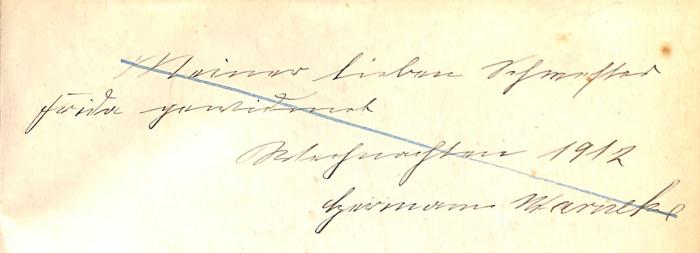 Meiner lieben Schwester
Frida gewidmet
Weihnachten 1912
Hermann Warneke